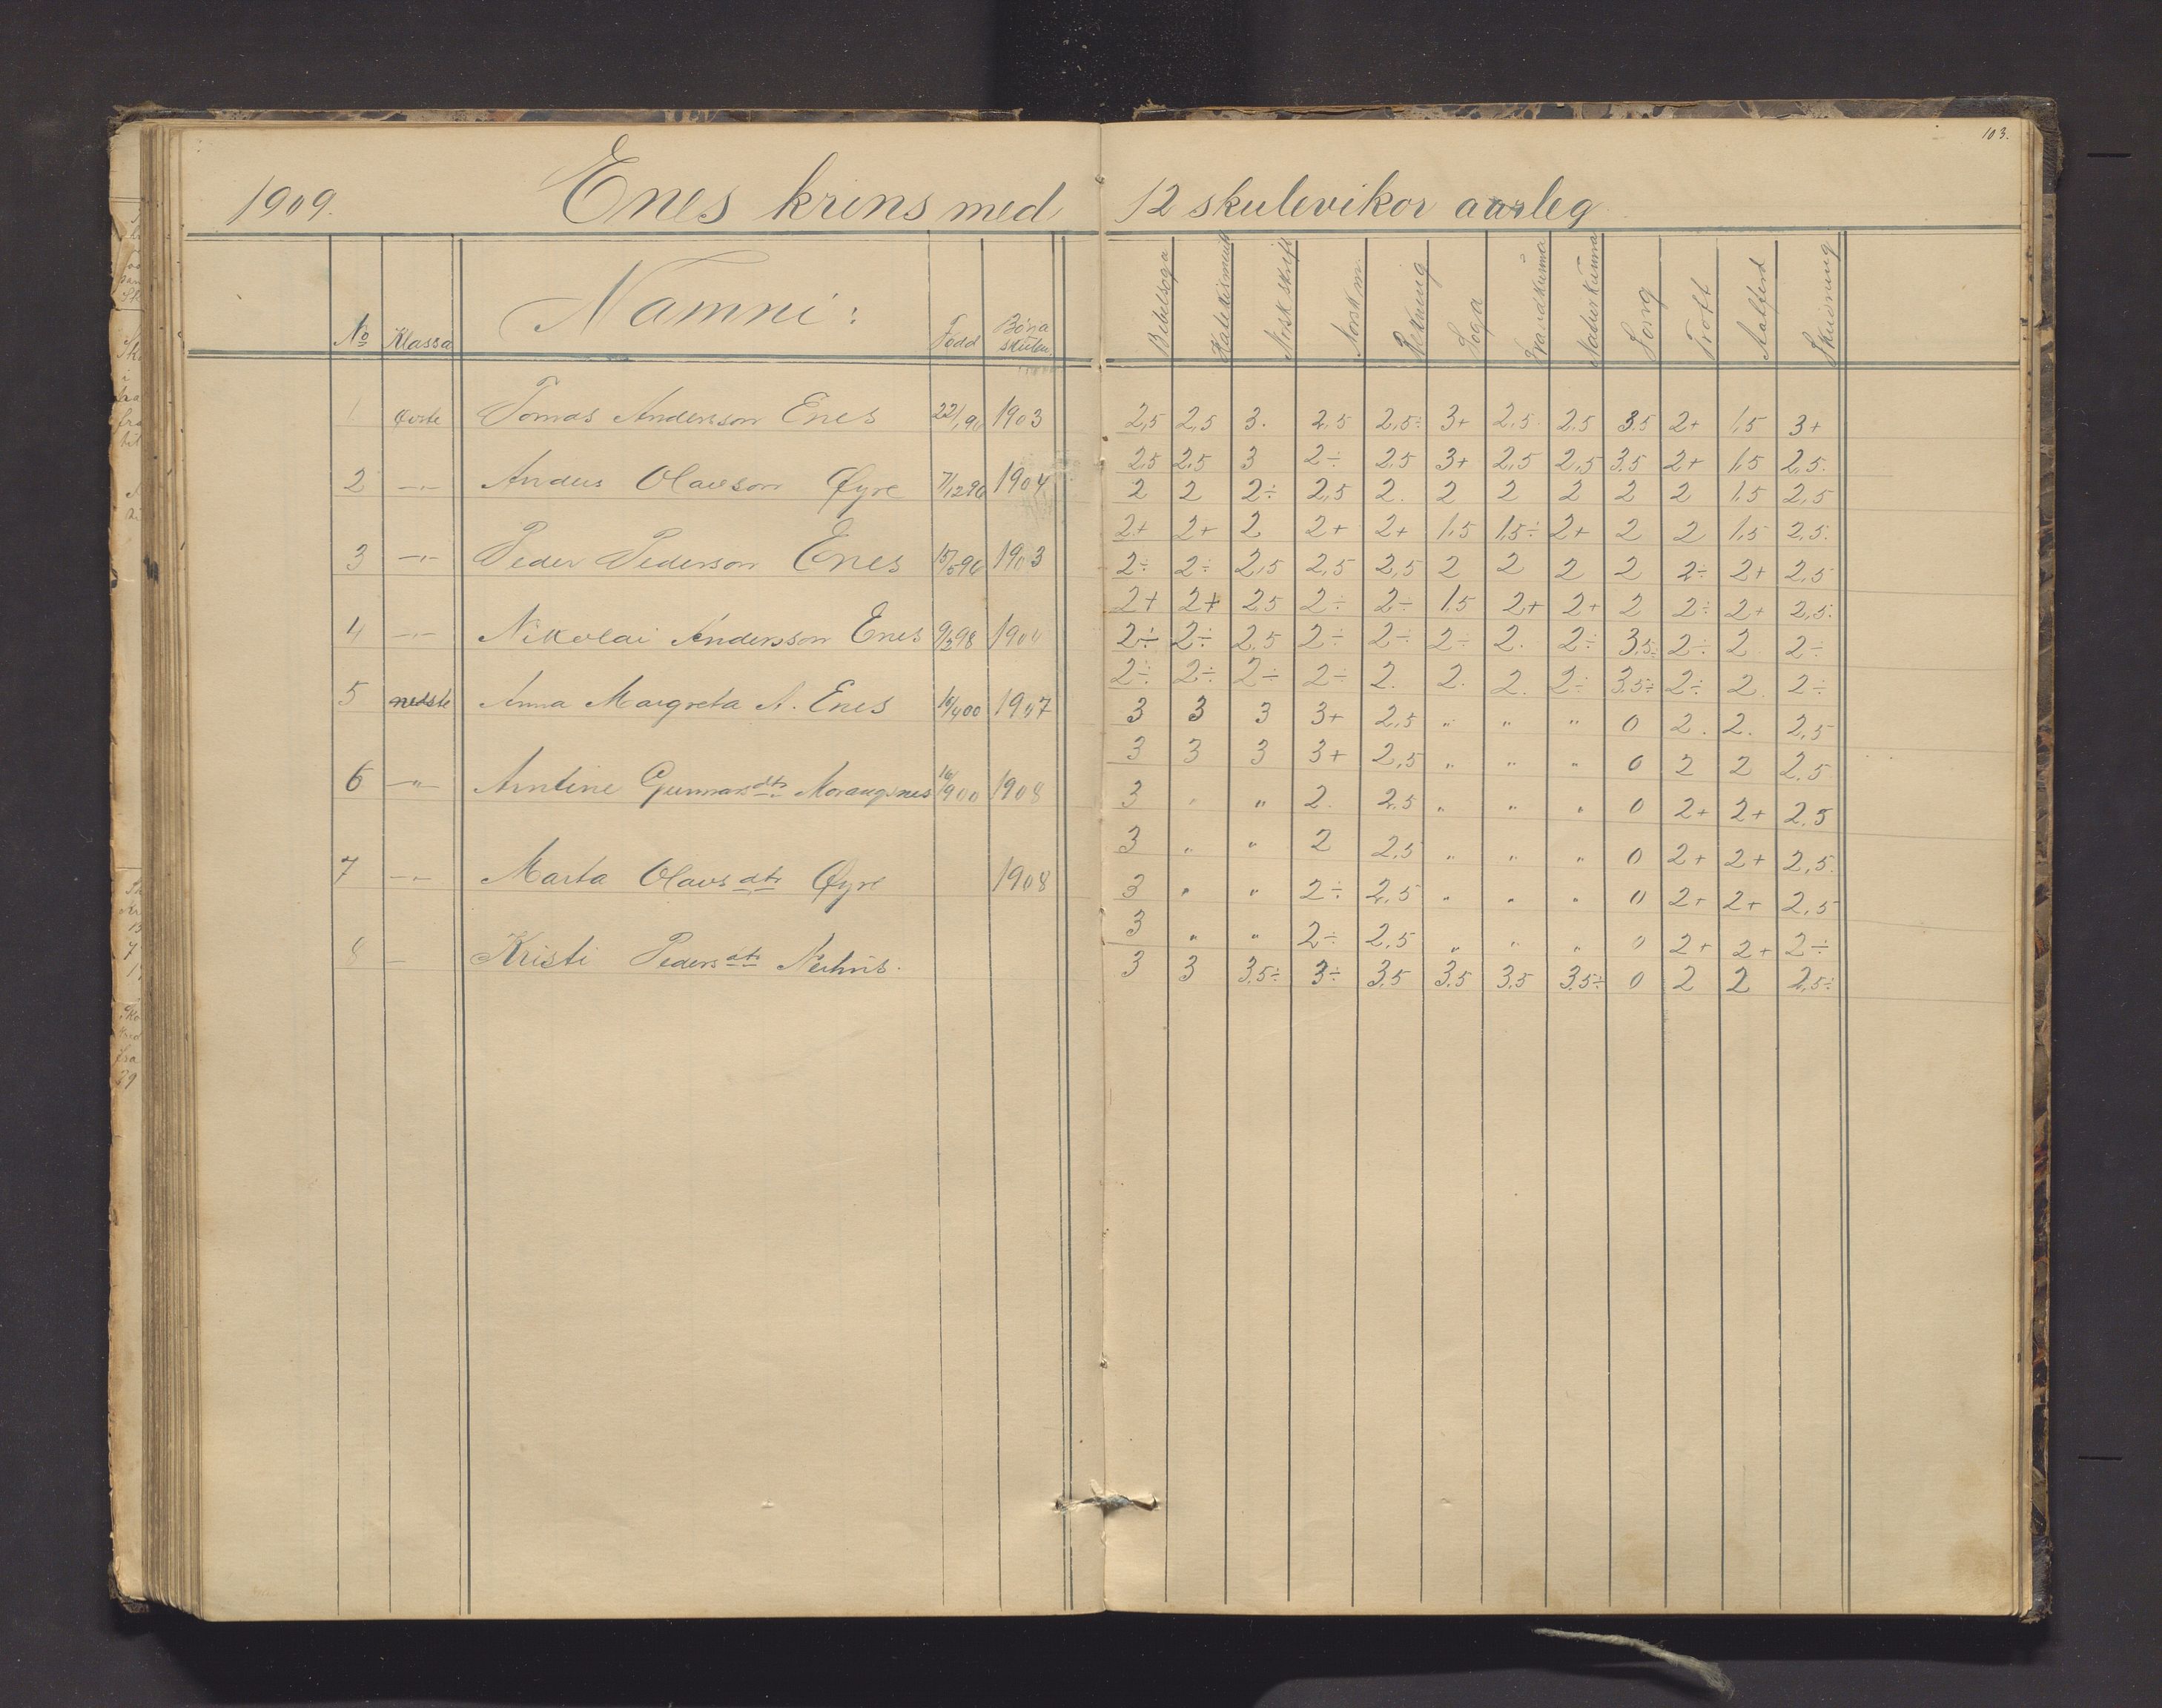 103.
1909. Enes krins med 12 skulevikor aarleg
No Klassa Namni: Fødd Børna skulen Bibelsoga Katekismus Norsk skrift Norsk m. Rekning Soga Jordkunna Naturkunna Song Trott Aatferd Skrivning
1 øvste Tomas Andersson Enes 22/1 96 1903 2,5 2,5 3. 2,5 2,5÷ 3+ 2,5 2,5 3,5 2+ 1,5 3+
2,5 2,5 3 2÷ 2,5 3+ 2,5 2,5 3,5 2+ 1,5 2,5.
2 —„— Anders Olavson Øyre 7/12 96 1904 2 2 2÷ 2,5 2. 2 2 2 2 2 1,5 2,5
2+ 2+ 2 2+ 2+ 1,5 1,5÷ 2+ 2 2 1,5 2,5.
3 —„— Peder Pederson Enes 15/5 96 1903 2÷ 2÷ 2,5 2,5 2,5 2 2 2 2 2÷ 2+ 2,5
2+ 2+ 2,5 2÷ 2÷ 1,5 2+ 2+ 2 2÷ 2+ 2,5.
4 —„— Nikolai Andersson Enes 9/3 98 2÷ 2÷ 2,5 2÷ 2÷ 2÷ 2. 2÷ 3,5÷ 2÷ 2 2÷
2÷ 2÷ 2÷ 2÷ 2. 2. 2. 2÷ 3,5÷ 2÷ 2. 2÷
5 nedste Anna Margreta A. Enes 16/4 00 1907 3 3 3 3+ 2,5 „ „ „ 0 2. 2. 2,5
3 3 3 3+ 2,5 „ „ „ 0 2 2 2,5
6 —„— Arntine Gunnarsdtr Morangsnes 1908 3 „ „ 2. 2,5 „ „ „ 0 2+ 2+ 2,5
3 „ „ 2 2,5 „ „ „ 0 2+ 2+ 2,5.
7 —„— Marta Olavsdtr Øyre 1908 3 „ „ 2÷ 2,5 „ „ „ 0 2+ 2+ 2,5
3 „ „ 2÷ 2,5 „ „ „ 0 2+ 2+ 2÷
8 — Kristi Pedersdtr Nerhus. 3 3 3,5÷ 3÷ 3,5 3,5 3,5 3,5÷ 0 2 2 2,5÷